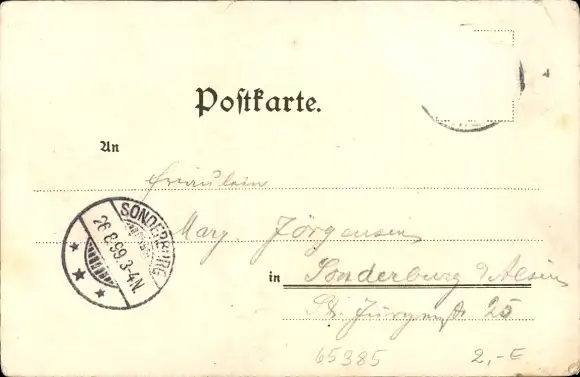 Postkarte.
An
Fräulein
Marg. Jörgensen
SONDERBURG
26.8.99.3-4N.
in Sonderburg a/Alsen
St. Jürgenstr 25
65385 2,-E